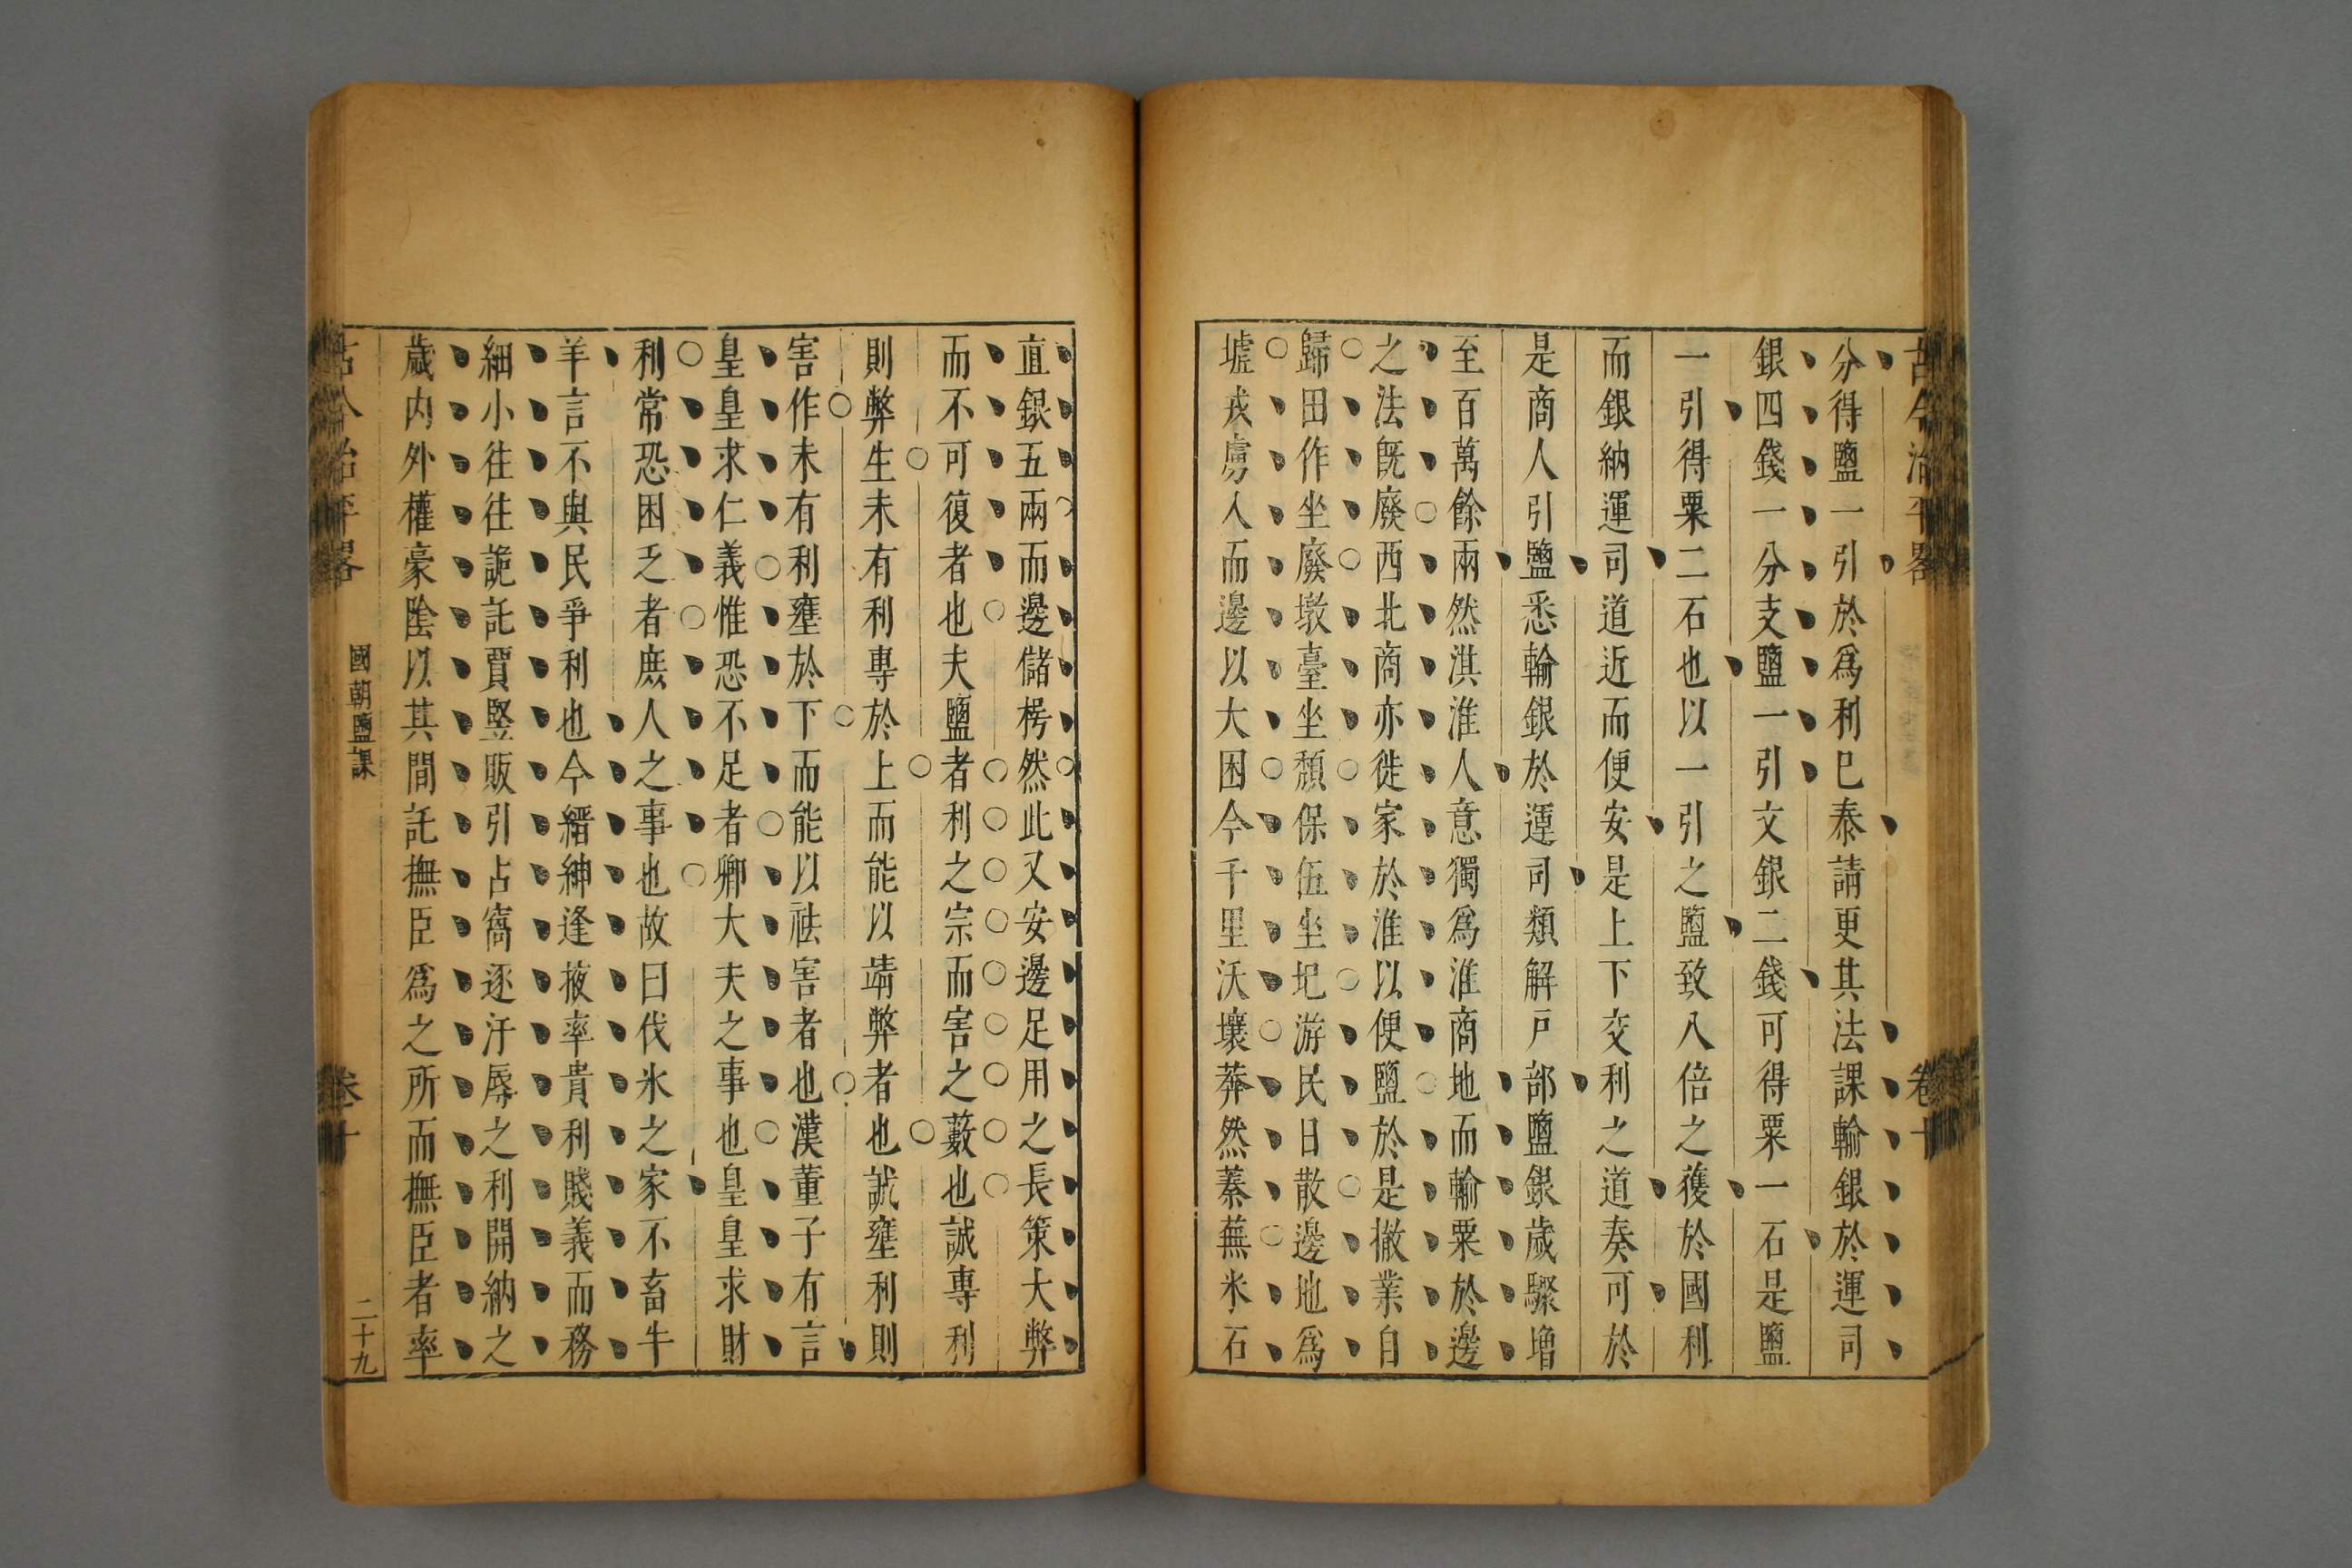 古今治平畧
卷十
分得鹽一引於爲利巳泰請更其法課輸銀於運司
銀四錢一分支鹽一引文銀二錢可得粟一石是鹽
一引得粟二石也以一引之鹽致八倍之獲於國利
而銀納運司道近而便安是上下交利之道奏可於
是商人引鹽悉輸銀於運司類解戸部鹽銀歲驟增
至百萬餘兩然淇淮人意獨爲淮商地而輸粟於邊
之法既廢西北商亦徙家於淮以便鹽於是撤業自
歸田作坐廢墩臺坐頹保伍坐圯游民日散邊地爲
墟戎虜入而邊以大困今千里沃壤莽然蓁蕪米石
直銀五兩而邊儲枵然此又安邊足用之長策大弊
而不可復者也夫鹽者利之宗而害之藪也誠專利
則弊生未有利專於上而能以靖弊者也誠壅利則
害作未有利壅於下而能以祛害者也漢董子有言
皇皇求仁義惟恐不足者卿大夫之事也皇皇求財
利常恐困乏者庶人之事也故曰伐氷之家不畜牛
羊言不與民爭利也今縉紳逢掖率貴利賤義而務
細小往往詭託賈竪販引占窩逐汙辱之利開納之
歲内外權豪陰以其間託撫臣爲之所而撫臣者率
古今治平畧
國朝鹽課
卷十
二十九